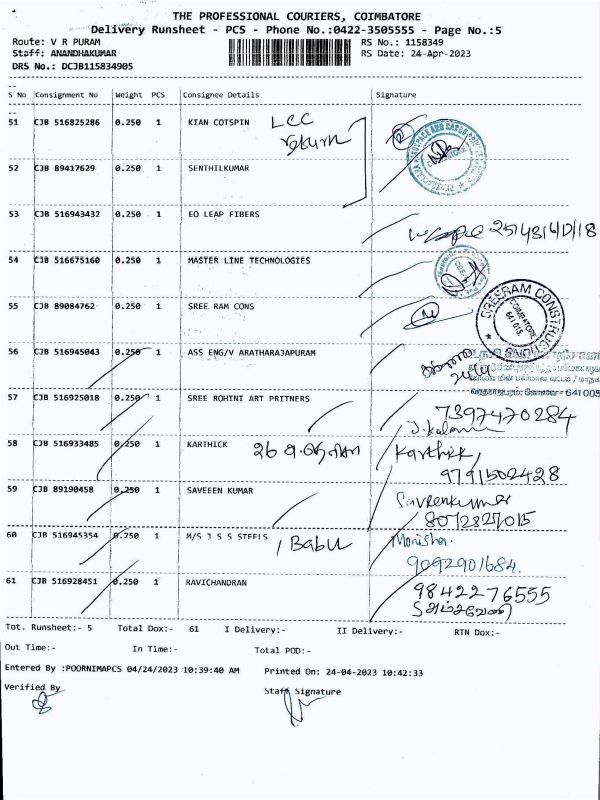 THE PROFESSIONAL COURIERS, COIMBATORE
Delivery Runsheet - PCS - Phone No.:0422-3505555 - Page No.:5
Route: V R PURAM RS No.: 1158349
Staff: ANANDHAKUMAR RS Date: 24-Apr-2023
DRS No.: DCJB115834905
S No Consignment No Weight PCS Consignee Details Signature
51 CJB 516825286 0.250 1 KIAN COTSPIN LCC
return
52 CJB 89417629 0.250 1 SENTHILKUMAR
53 CJB 516943432 0.250 1 EO LEAP FIBERS
54 CJB 516675160 0.250 1 MASTER LINE TECHNOLOGIES
55 CJB 89084762 0.250 1 SREE RAM CONS
SREERAM CONSTRUCTIONS
COIMBATORE
641 015.
56 CJB 516945043 0.250 1 ASS ENG/V ARATHARAJAPURAM
57 CJB 516925018 0.250 1 SREE ROHINI ART PRITNERS 7397470284
58 CJB 516933485 0.250 1 KARTHICK Karthick,
9791502428
59 CJB 89190458 0.250 1 SAVEEEN KUMAR
8072827015
60 CJB 516945354 0.250 1 M/S J S S STEELS , Babu Monisha.
9092901684.
61 CJB 516928451 0.250 1 RAVICHANDRAN 9842276555
Tot. Runsheet:- 5 Total Dox:- 61 I Delivery:- II Delivery:- RTN Dox:-
Out Time:- In Time:- Total POD:-
Entered By :POORNIMAPCS 04/24/2023 10:39:40 AM Printed On: 24-04-2023 10:42:33
Verified By Staff Signature